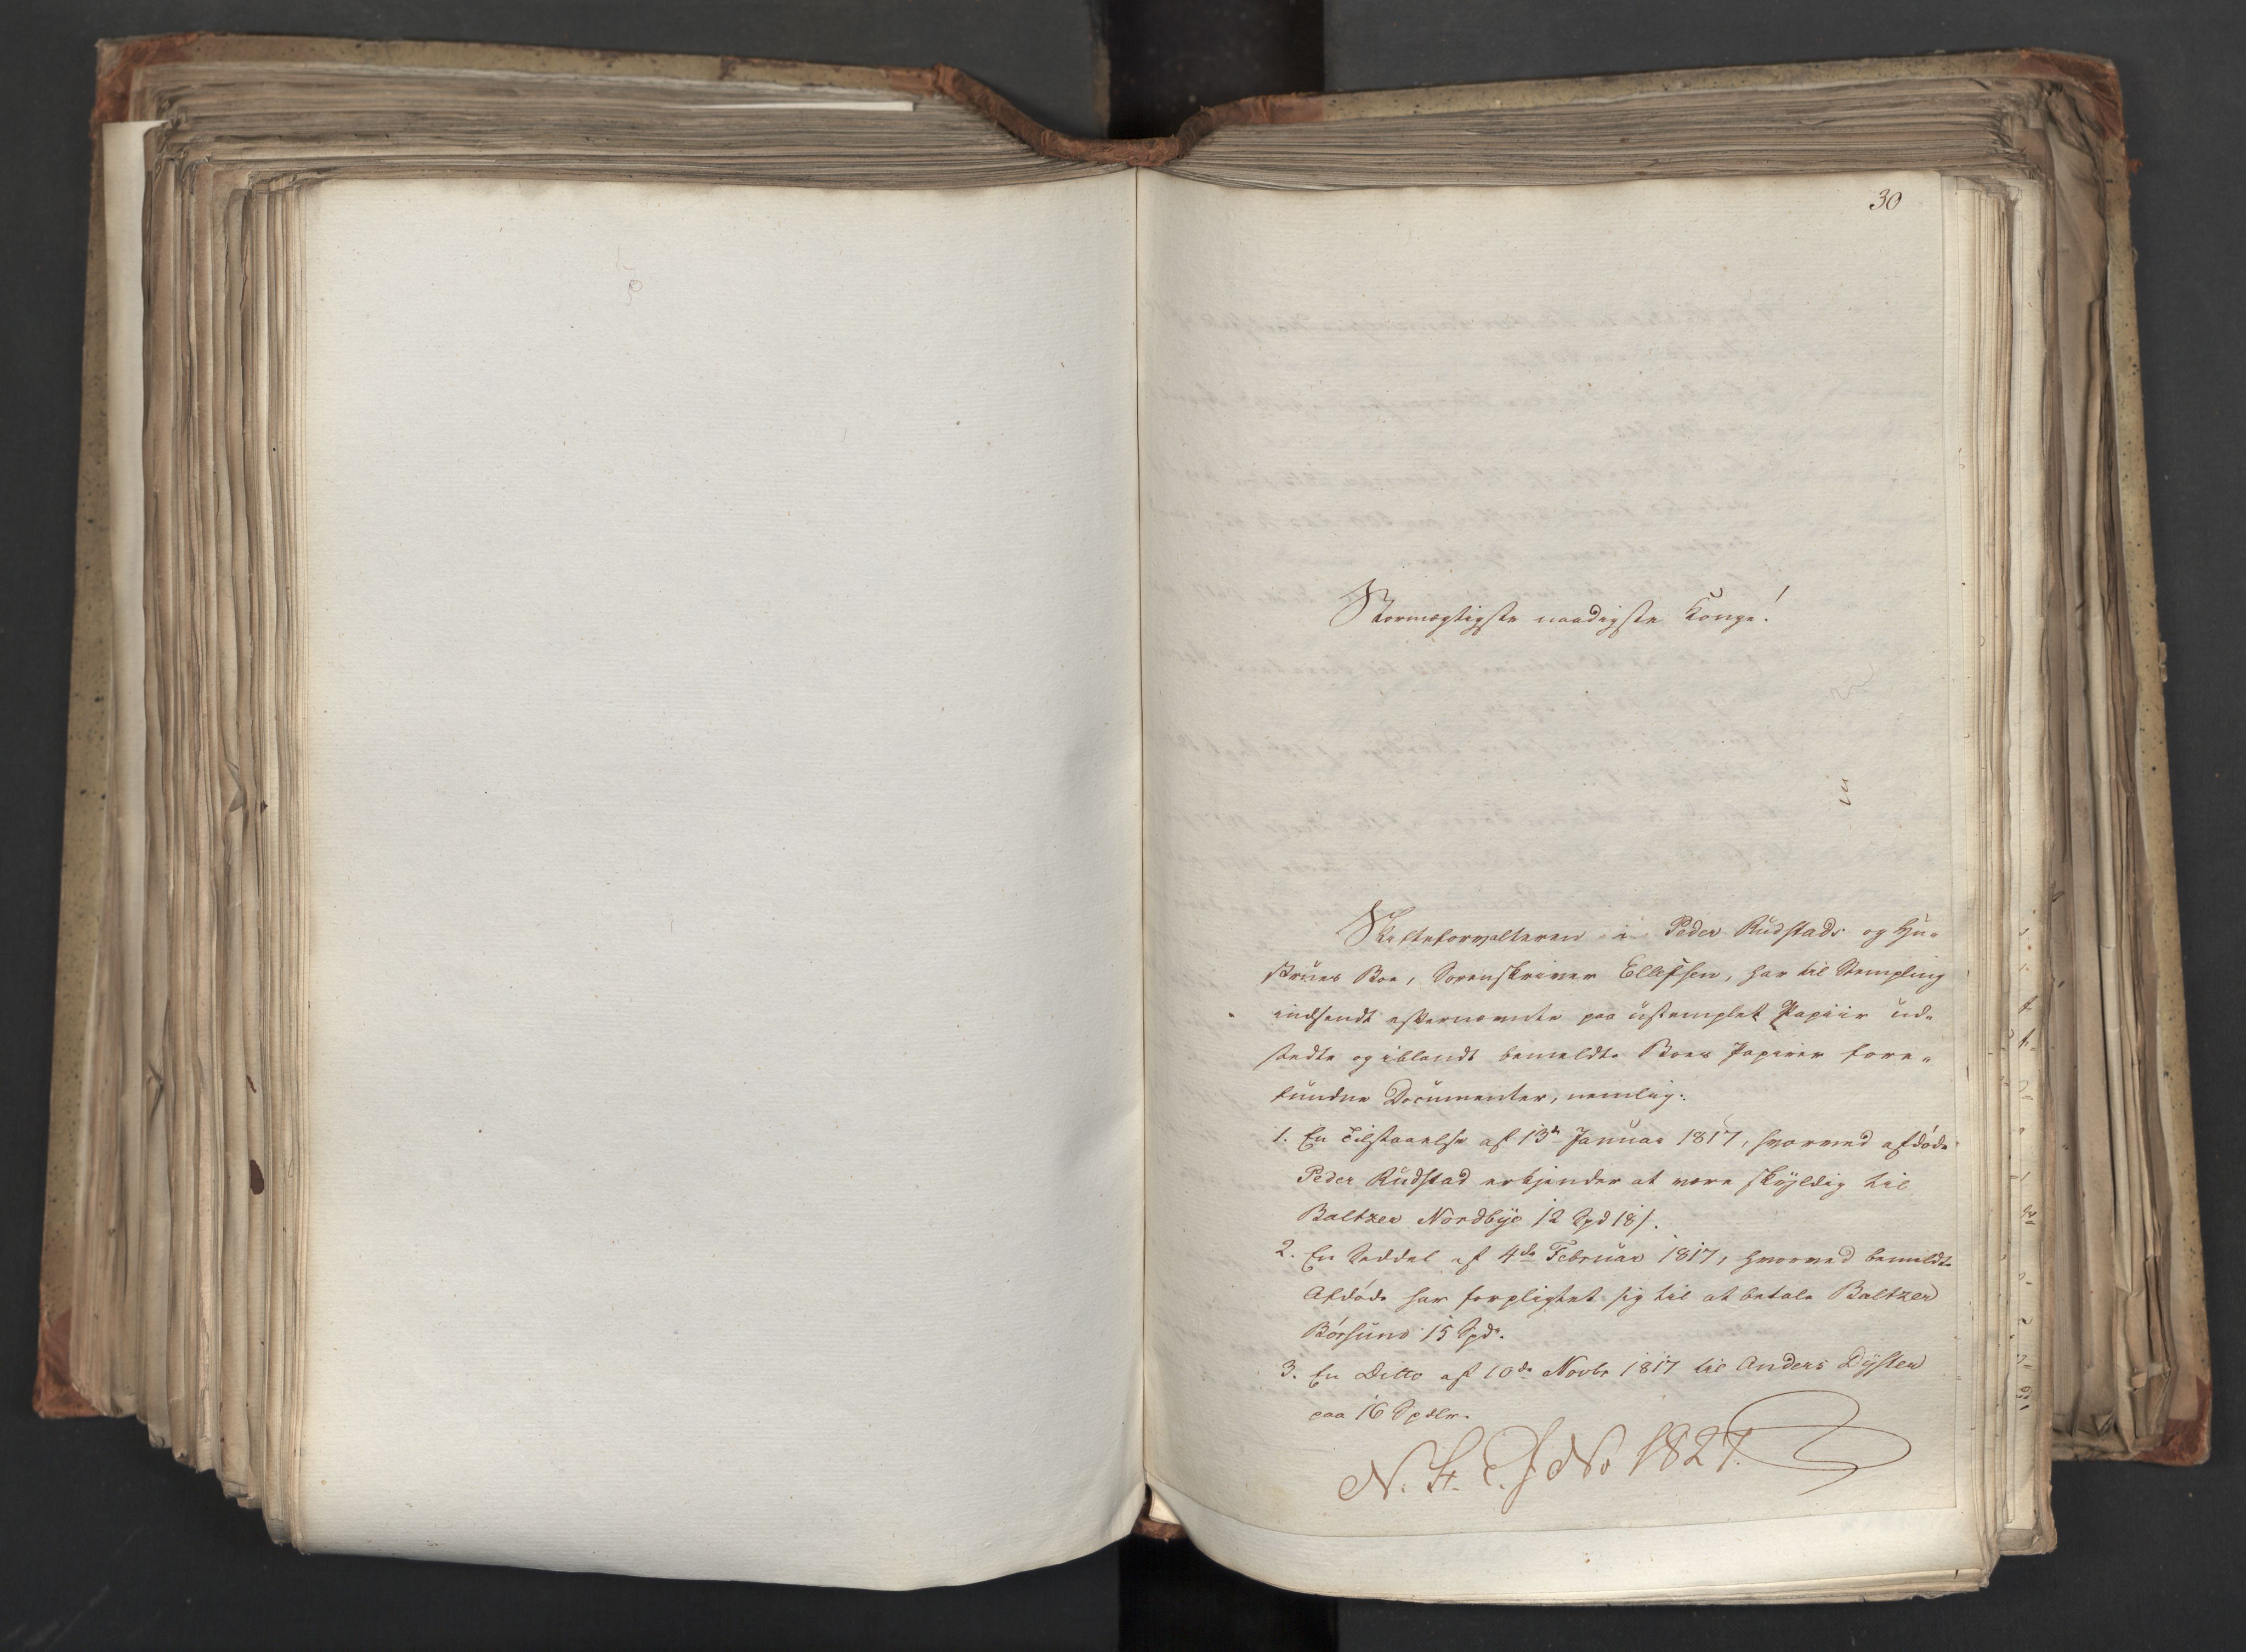 30
Stormægtigste naadigste Konge!
Skifteforvalteren i Peder Rudstads og Hu-
struес Boe, Sorenskriver Ellefsen, har til Stempling
indsendt efternævnte paa ustemplet Papiir ud-
stedte og iblandt bemeldte Boes Papirer fore-
fundne Documenter, nemlig:
1. En Tilstaaelse af 13de Januar 1817, hvorved afdöde
Peder Rudstad erkjender at være skyldig til
Baltzer Nordbye 12 Spd 18 s.
2. En Seddel af 4de Februar 1817, hvorved bemeldte
Afdöde har forpligtet sig til at betale Baltzer
Börsund 15 Spd.
3. En Ditto af 10de Novbr 1817 til Anders Dyster
paa 16 Spdlr.
No 1827.